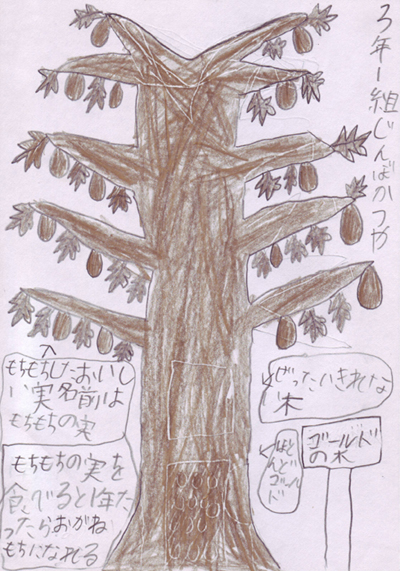 3年1組じんばかつや
もちもちしたおいし
い実名前は
もちもちの実
もちもちの実を
食べると1年た
ったらおがね
もちになれる
ぜったいきれない
木
ほとんどゴールド
ゴールド
の木